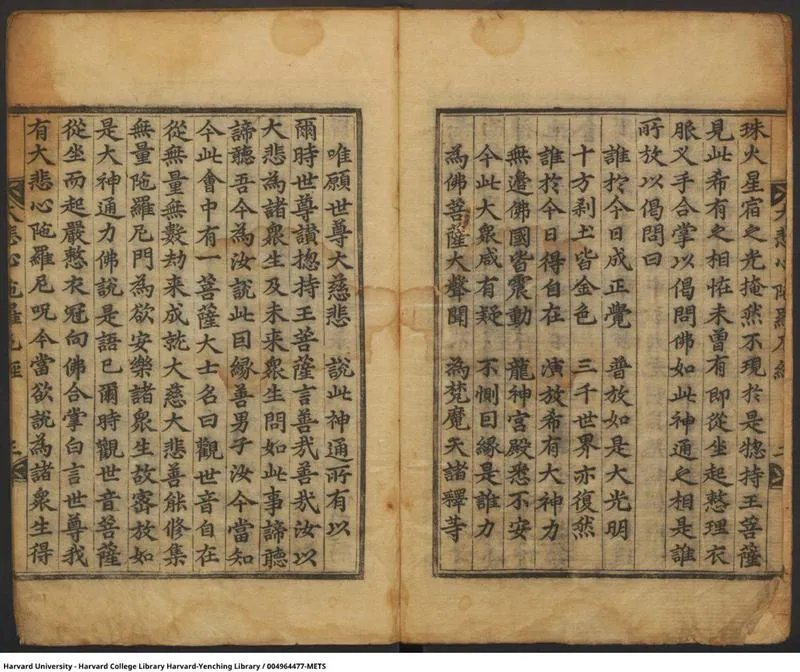 珠火星宿之光掩然不現於是惣持王菩薩
見此希有之相恠未曽有即從坐起整理衣
服叉手合掌以偈問佛如此神通之相是誰
所放以偈問曰
誰於今日成正覺 普放如是大光明
十方刹土皆金色 三千世界亦復然
誰於今日得自在 演放希有大神力
無邊佛國皆震動 龍神宮殿悉不安
今此大衆咸有疑 不惻因緣是誰力
為佛菩薩大聲聞 為梵魔天諸釋等
唯願世尊大慈悲 說此神通所有以
爾時世尊讃惣持王菩薩言善哉善哉汝以
大悲為諸衆生及未來衆生問如此事諦聽
諦聽吾今為汝說此因緣善男子汝今當知
今此會中有一菩薩大士名曰觀世音自在
從無量無數劫來成就大慈大悲善能修集
無量陁羅尼門為欲安樂諸衆生故密放如
是大神通力佛說是語已爾時觀世音菩薩
從坐而起嚴整衣冠向佛合掌白言世尊我
有大悲心陁羅尼呪今當欲說為諸衆生得
大悲心陁羅尼經 三
Harvard University - Harvard College Library Harvard-Yenching Library / 004964477-METS